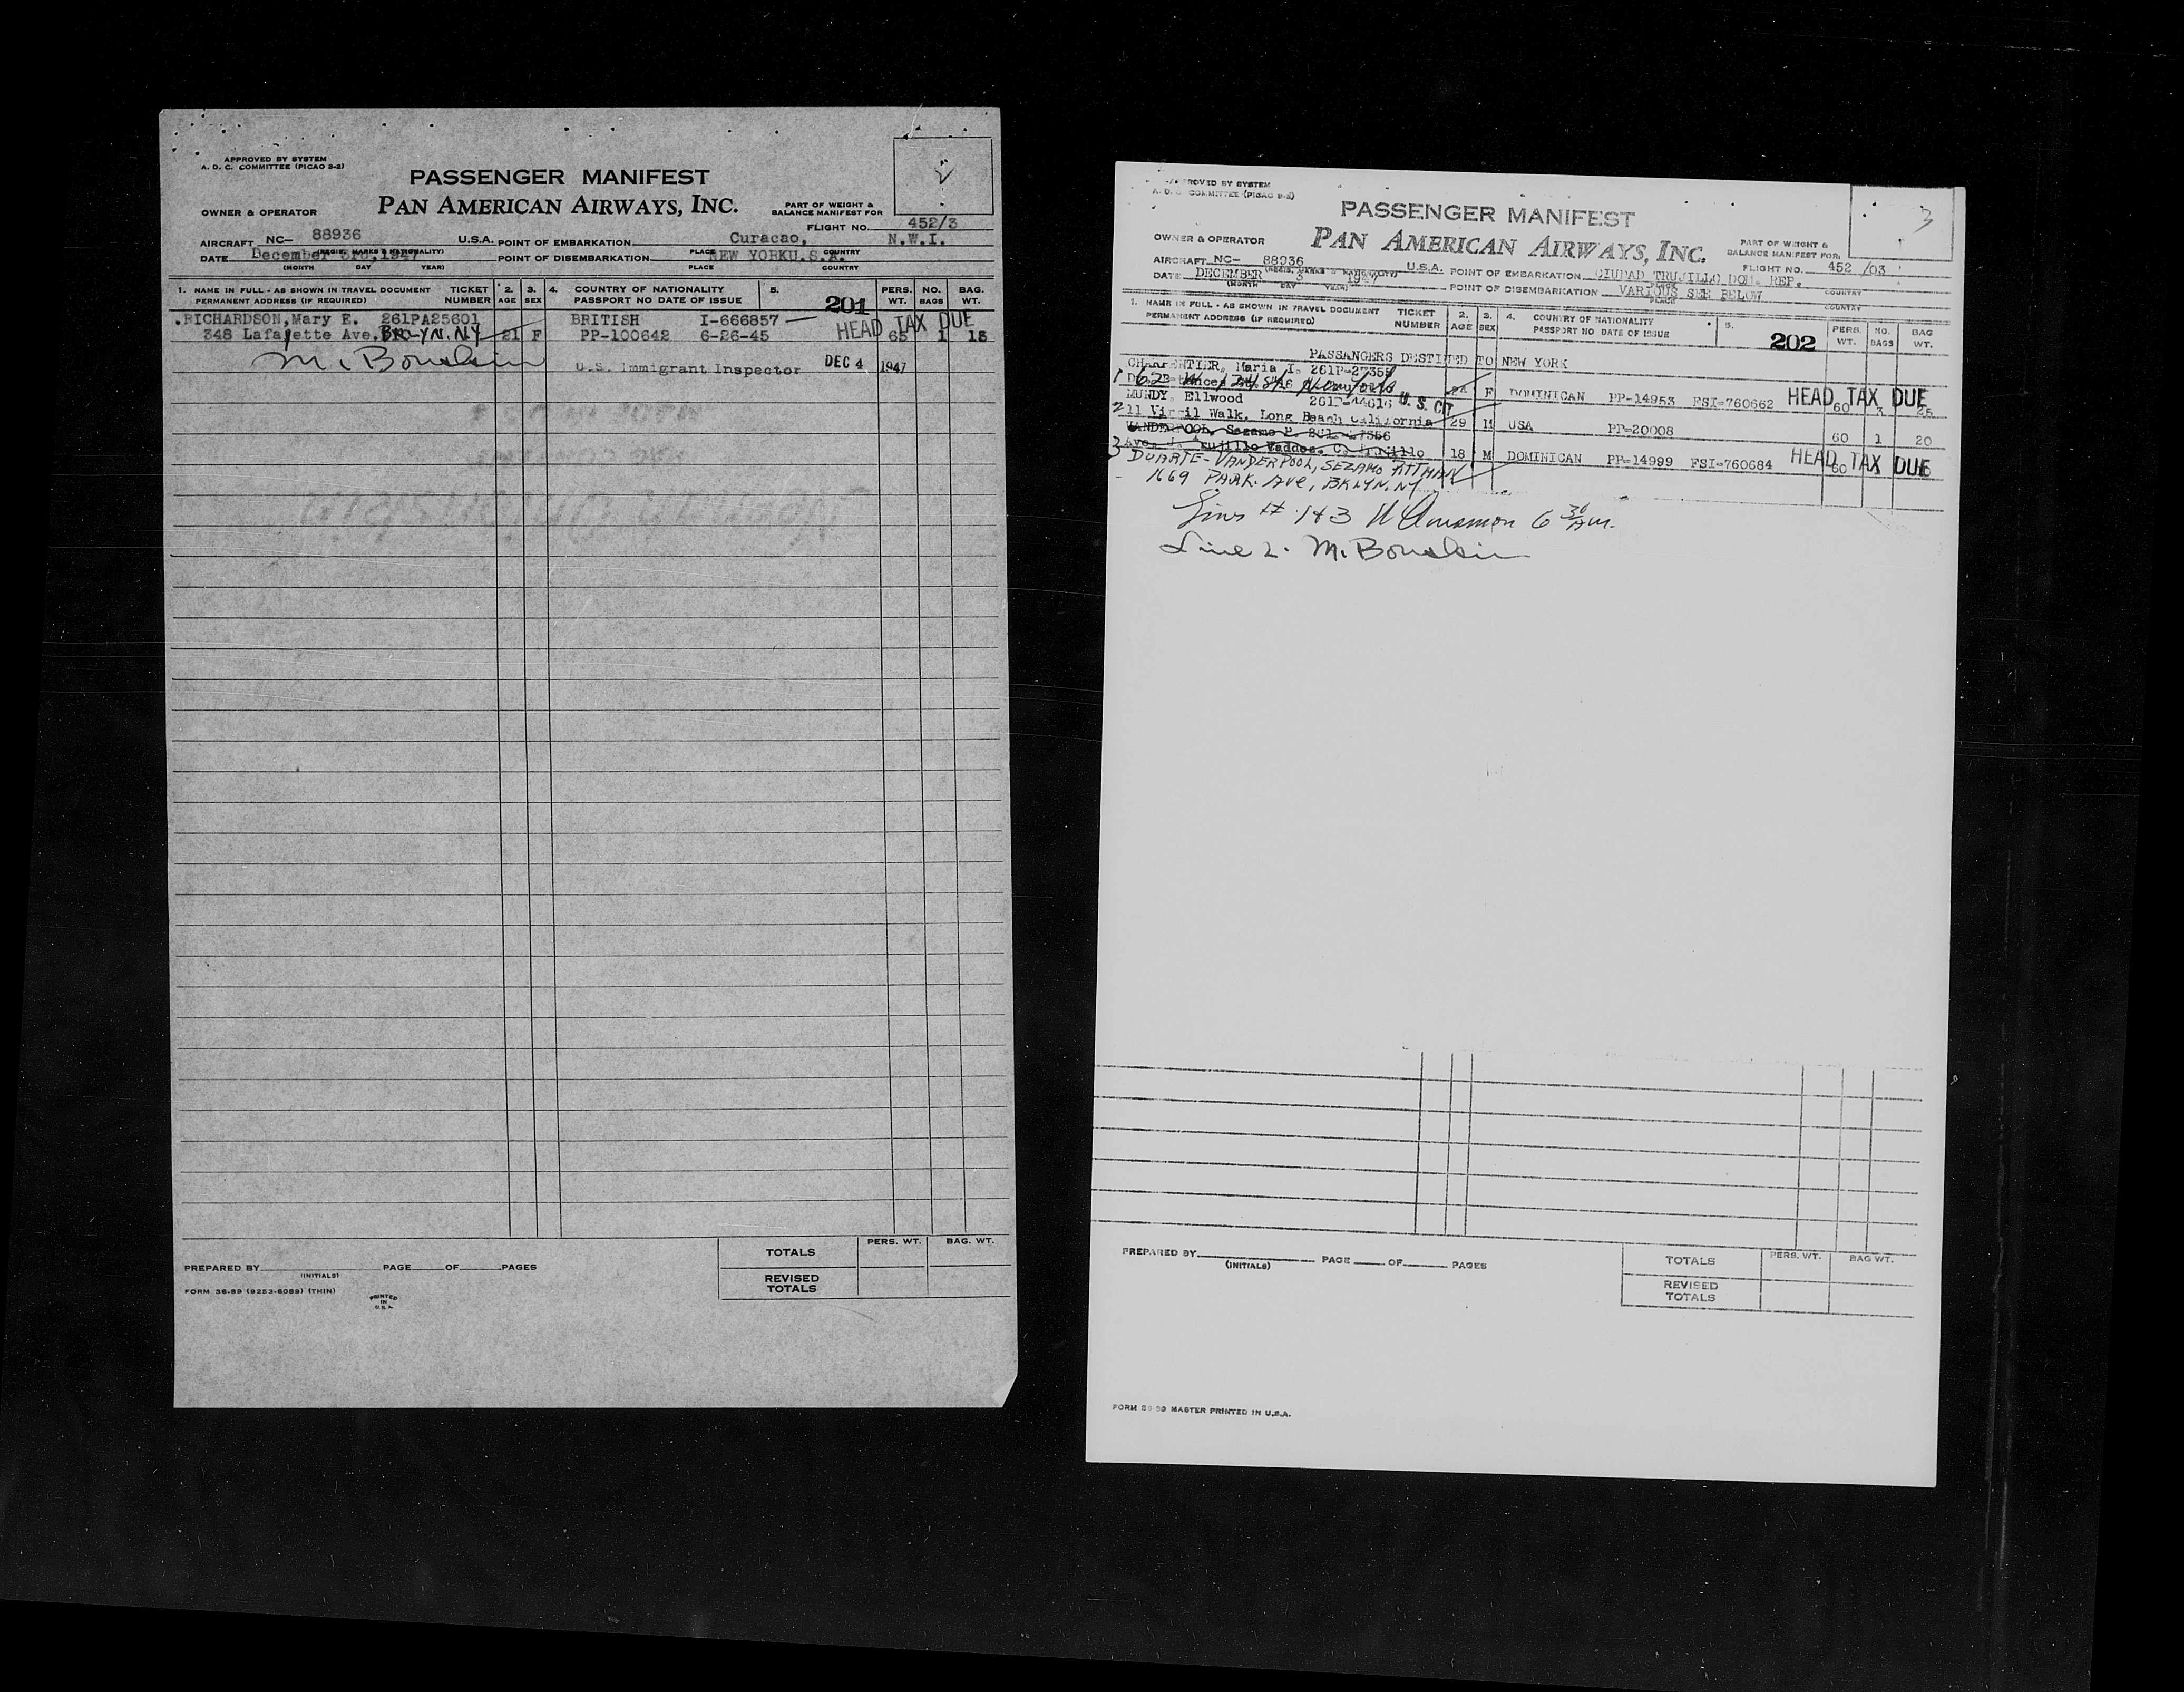 APPROVED BY SYSTEM
A. D. C. COMMITTEE (PICAO 3-2)
PASSENGER MANIFEST
PAN AMERICAN AIRWAYS, INC.
OWNER & OPERATOR
PART OF WEIGHT &
BALANCE MANIFEST FOR
FLIGHT NO. 452/3
AIRCRAFT NC- 88936 U.S.A. POINT OF EMBARKATION Curacao, N.W.I.
(REGIS. MARKS & NATIONALITY) PLACE COUNTRY
DATE December 3rd, 1947 POINT OF DISEMBARKATION NEW YORK U.S.A.
(MONTH DAY YEAR) PLACE COUNTRY
1. NAME IN FULL - AS SHOWN IN TRAVEL DOCUMENT TICKET 2. 3. 4. COUNTRY OF NATIONALITY 5. 201 PERS. NO. BAG.
PERMANENT ADDRESS (IF REQUIRED) NUMBER AGE SEX PASSPORT NO DATE OF ISSUE WT. BAGS WT.
RICHARDSON, Mary E. 261PA25601 BRITISH I-666857 HEAD TAX DUE
348 Lafayette Ave. BKLYN. NY 21 F PP-100642 6-26-45 65 1 15
U.S. Immigrant Inspector DEC 4 1947
PREPARED BY PAGE OF PAGES
(INITIALS)
TOTALS PERS. WT. BAG. WT.
REVISED
TOTALS
FORM 36-89 (9253-6089) (THIN)
PRINTED
IN
U.S.A.
APPROVED BY SYSTEM
A. D. C. COMMITTEE (PICAO 3-2)
3
PASSENGER MANIFEST
PAN AMERICAN AIRWAYS, INC.
OWNER & OPERATOR
PART OF WEIGHT &
BALANCE MANIFEST FOR:
FLIGHT NO. 452 /03
AIRCRAFT NC- 88936 U.S.A. POINT OF EMBARKATION CIUDAD TRUJILLO DOM. REP.
DATE DECEMBER 3 1947 POINT OF DISEMBARKATION VARIOUS SEE BELOW
(MONTH DAY YEAR) PLACE COUNTRY
1. NAME IN FULL - AS SHOWN IN TRAVEL DOCUMENT TICKET 2. 3. 4. COUNTRY OF NATIONALITY 5. 202 PERS. NO. BAG
PERMANENT ADDRESS (IF REQUIRED) NUMBER AGE SEX PASSPORT NO DATE OF ISSUE WT. BAGS WT.
PASSANGERS DESTINED TO NEW YORK
CHARPENTIER, Maria I. 261P-27355
1 F DOMINICAN PP-14953 FSI-760662 HEAD TAX DUE 60 3 25
MUNDY, Ellwood 261P-44616 U. S. CIT
2 11 Virgil Walk, Long Beach California 29 M USA PP-20008 60 1 20
VANDERPOOL, Sezamo P.
3 18 M DOMINICAN PP-14999 FSI-760684 HEAD TAX DUE 60
DUARTE-VANDERPOOL, SEZAMO PITTMAN
1669 PARK. AVE, BKLYN. NY
Lines # 1 & 3 6 30 Am.
Line 2.
PREPARED BY PAGE OF PAGES
(INITIALS)
TOTALS PERS. WT. BAG WT.
REVISED
TOTALS
FORM MASTER PRINTED IN U.S.A.